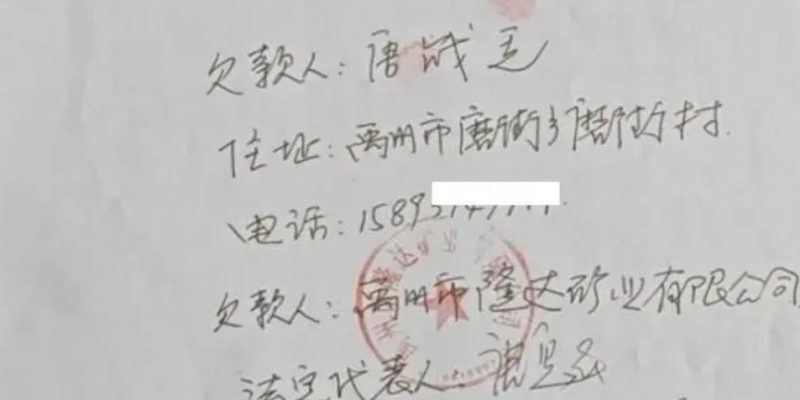 欠款人：唐战毛
住址：禹州市磨街乡磨街村
电话：15893
欠款人：禹州市隆达矿业有限公司
法定代表人：唐